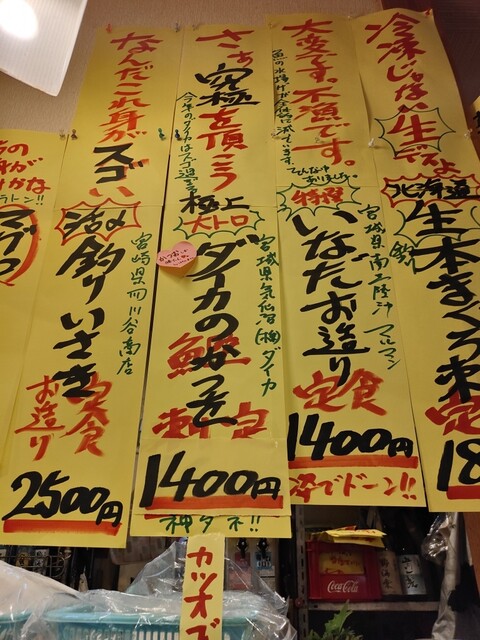 冷凍じゃない
生
ですよ
北海道
釣
生本まぐろ赤
定
18
大変です。不漁です。
魚の水揚げが全体的に減っています。
そんな中
ありました。
特撰
宮城県南三陸沖 マルマン
いなだお造り
定食
1400円
でドーン!!
さぁ究極を頂こう
今年のダイカはスゴ過ぎる
極上
大トロ
宮城県気仙沼(株)ダイカ
ダイカのかつを
鰹
刺定
1400円
神タネ!!
カツオで
なんだこれ身が
スゴい
活〆
宮崎県
谷商店
釣りいさき
お造り
定食
2500円
マグロ
Coca-Cola